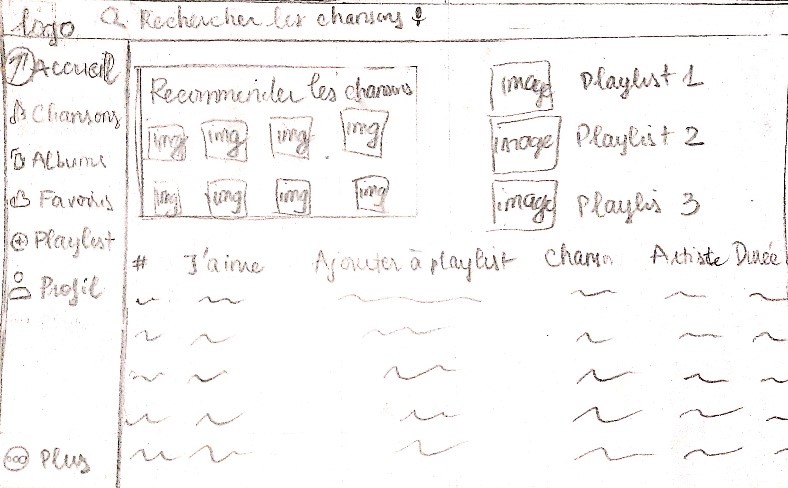 logo Rechercher les chansons
Accueil
Chansons
Albums
Favoris
Playlist
Profil
Plus
Recommender les chansons
img img img img
img img img img
image Playlist 1
image Playlist 2
image Playlis 3
# J'aime Ajouter à playlist chanson Artiste Durée